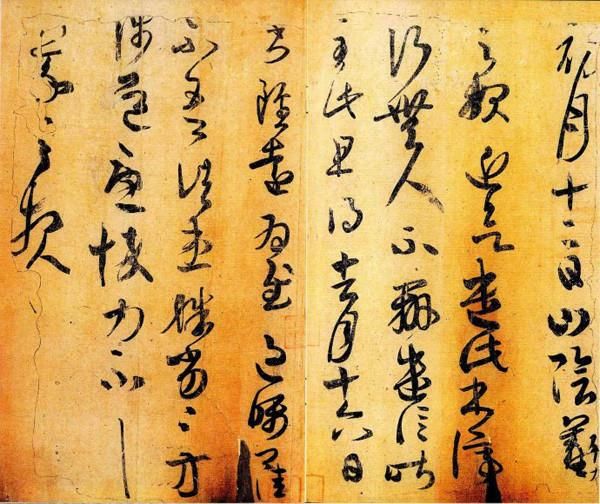 初月十二日山陰羲
之報近欲遣此書停
行無人不辦遣信昨
至此且得去月十六日
書雖遠為慰過囑
不吾諸患殊劣殊劣方
涉道憂悴力不具
羲之報